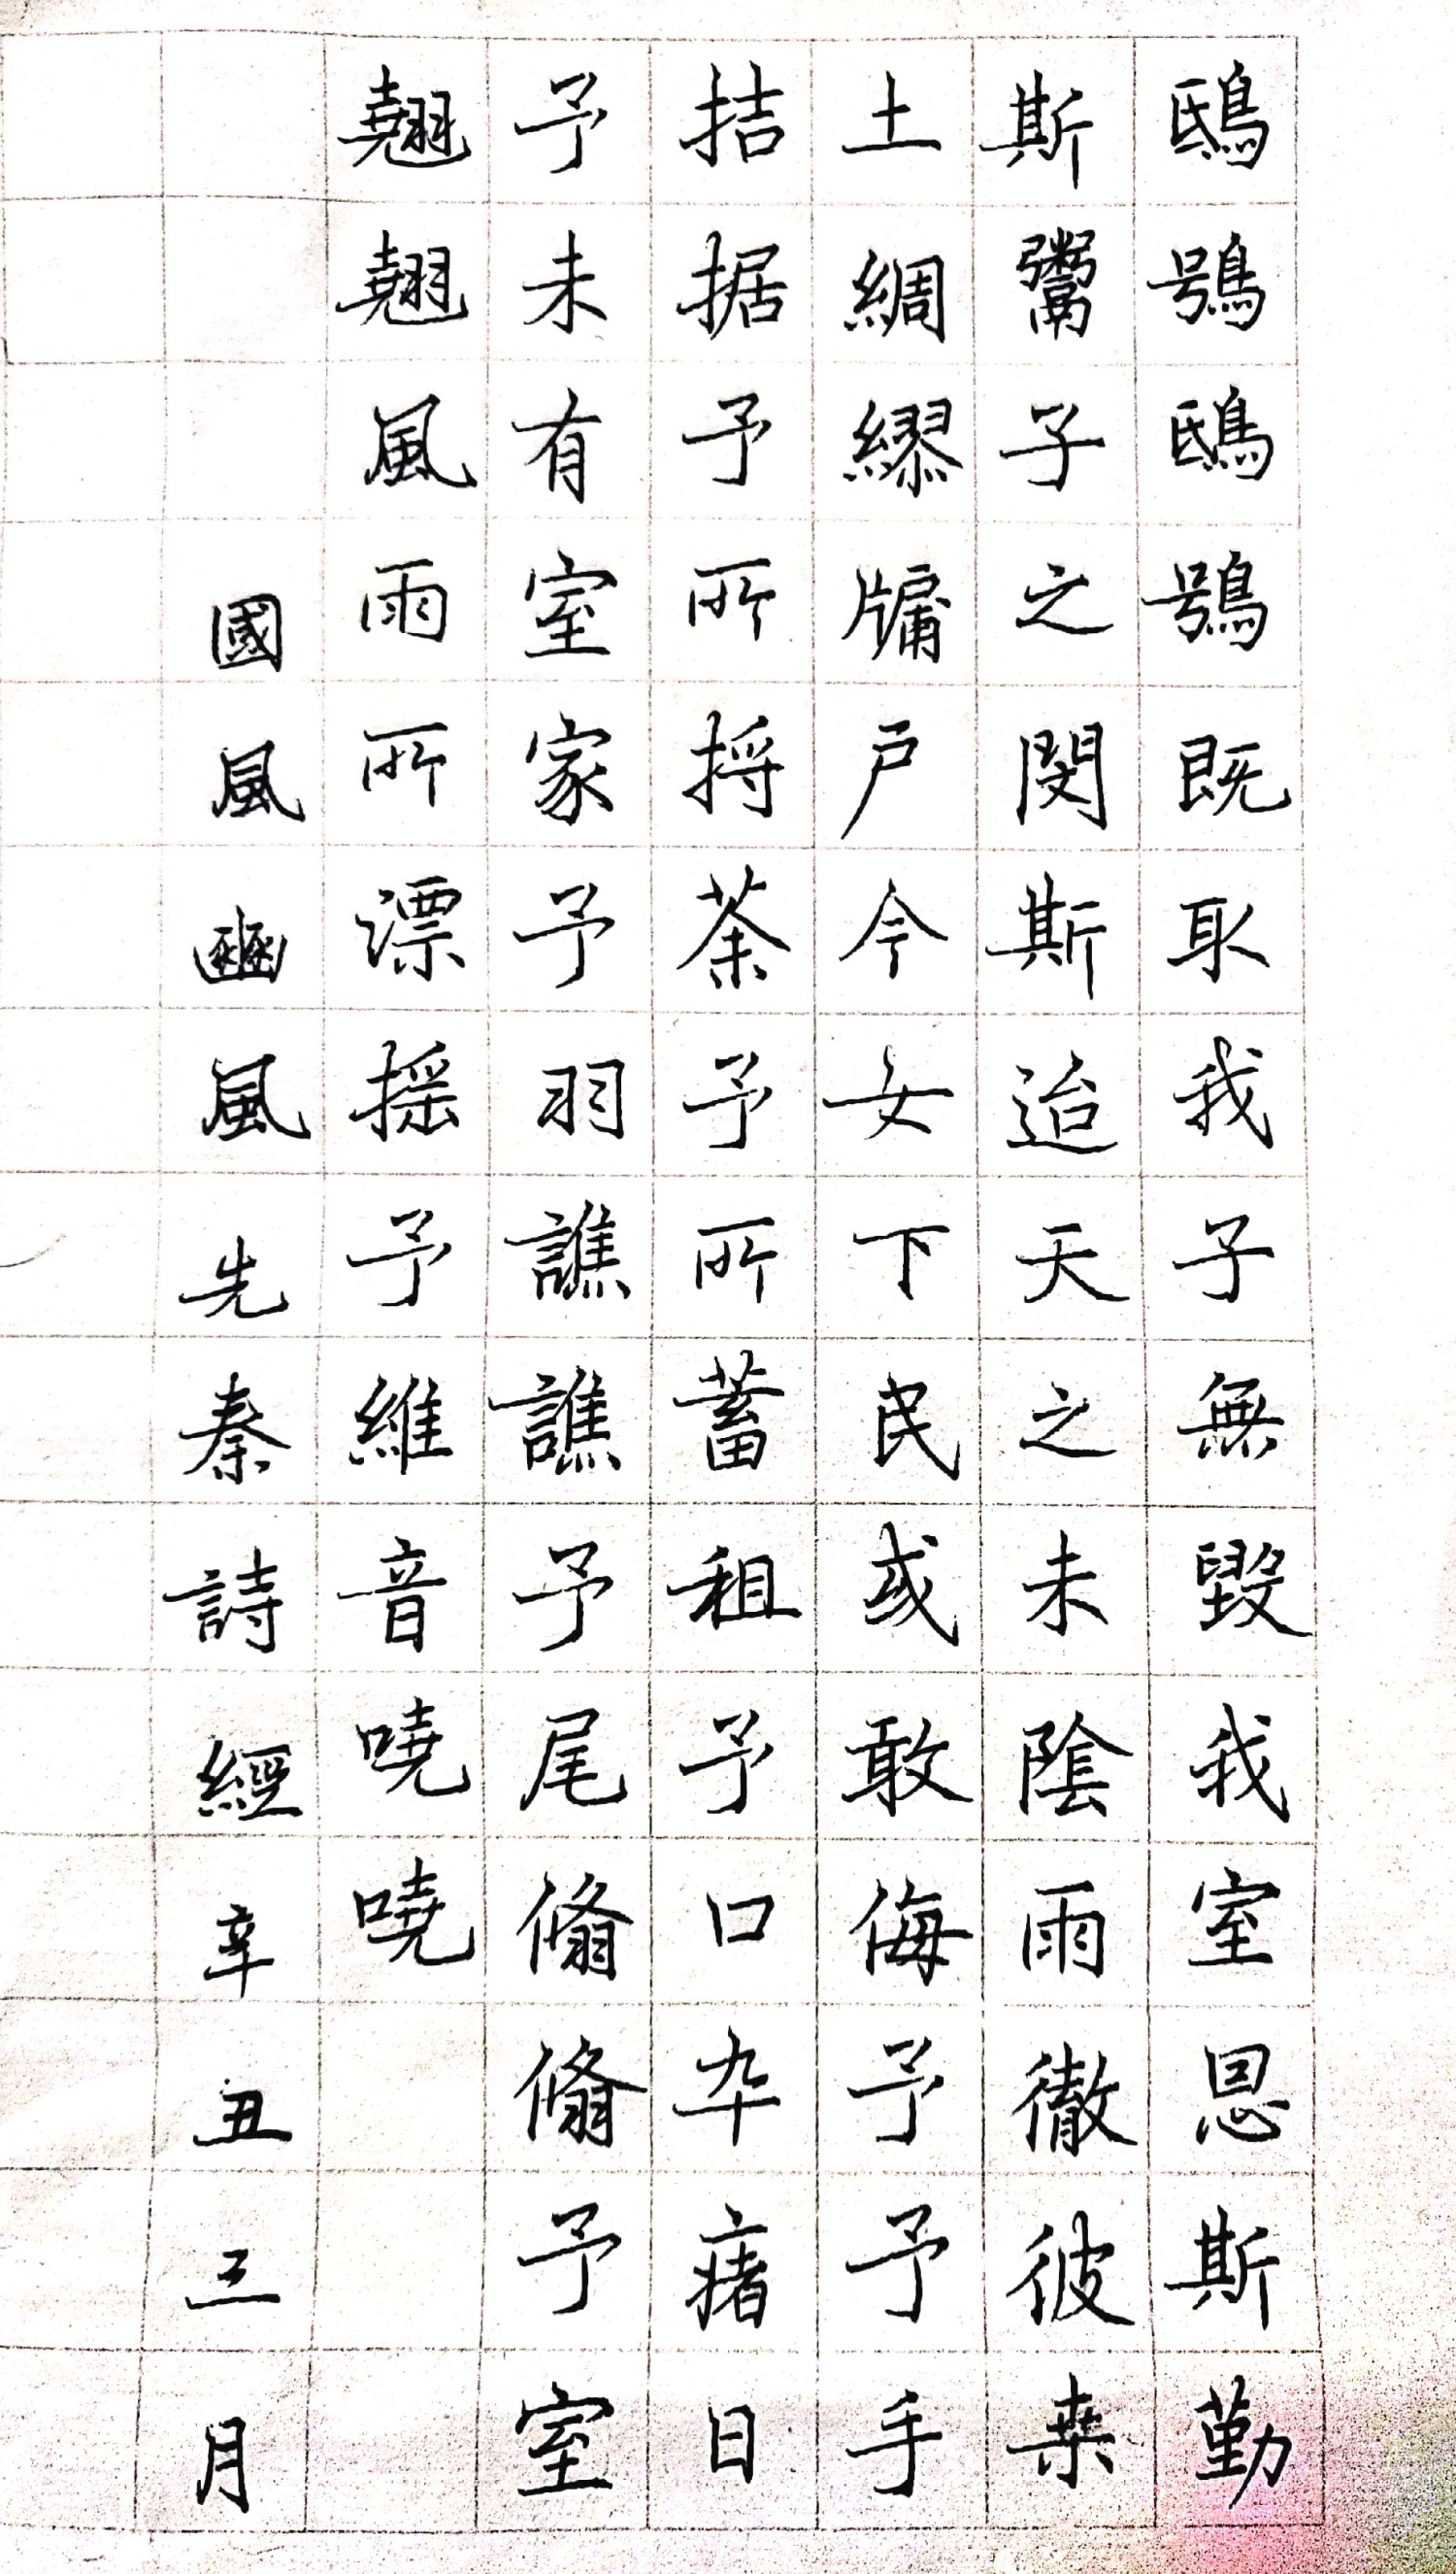 鴟鴞鴟鴞既取我子無毀我室恩斯勤
斯鬻子之閔斯迨天之未陰雨徹彼桒
土綢繆牖户今女下民或敢侮予予手
拮据予所捋荼予所蓄租予口卒瘏日
予未有室家予羽譙譙予尾翛翛予室
翹翹風雨所漂摇予維音嘵嘵
國風豳風先秦詩經辛丑三月